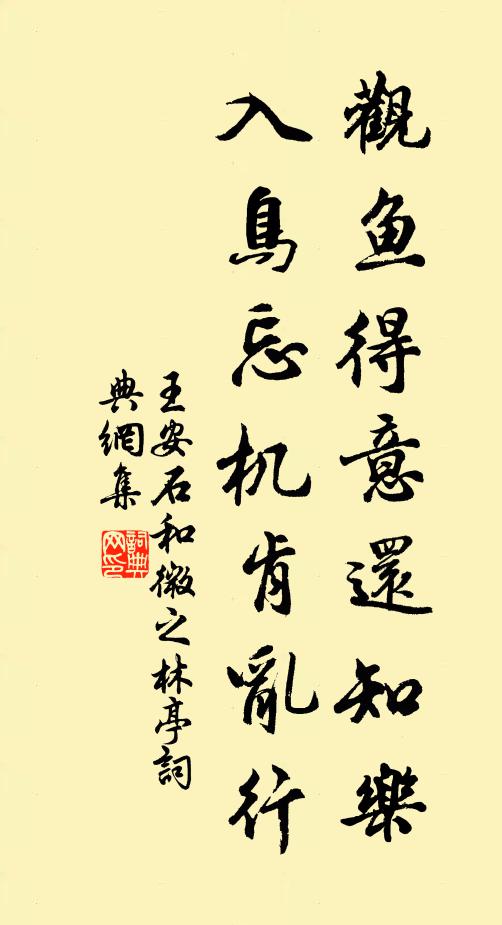 觀鱼得意還知樂
入鳥忘机肯亂行
王安石和微之林亭詞
典網集
詞典网印